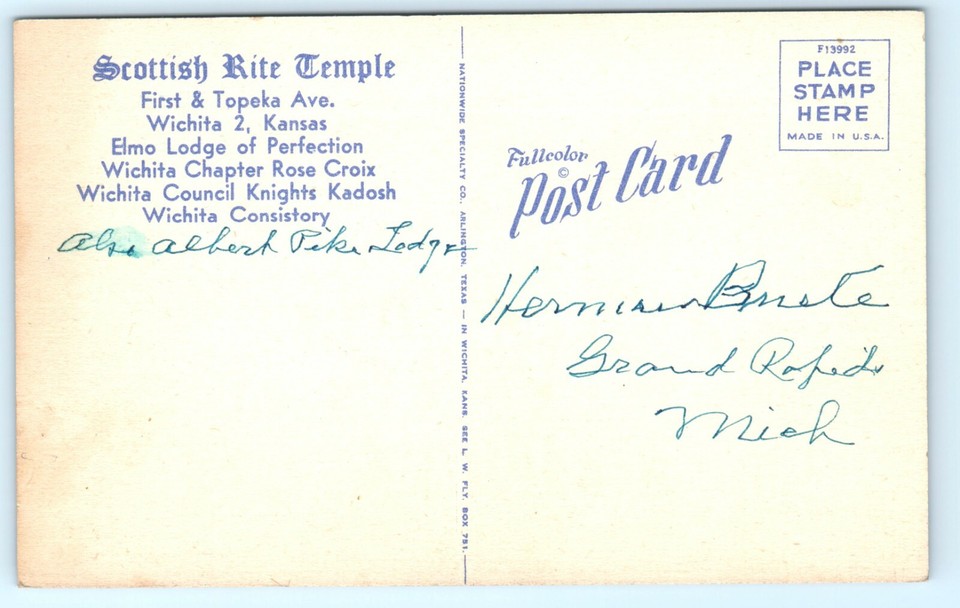 Scottish Rite Temple
First & Topeka Ave.
Wichita 2, Kansas
Elmo Lodge of Perfection
Wichita Chapter Rose Croix
Wichita Council Knights Kadosh
Wichita Consistory
Also Albert Pike Lodge
NATIONWIDE SPECIALTY CO., ARLINGTON, TEXAS — IN WICHITA, KANS. SEE L. W. FLY, BOX 751.
F13992
PLACE
STAMP
HERE
MADE IN U.S.A.
Fullcolor
©
Post Card
Herman
Grand Rapids
Mich